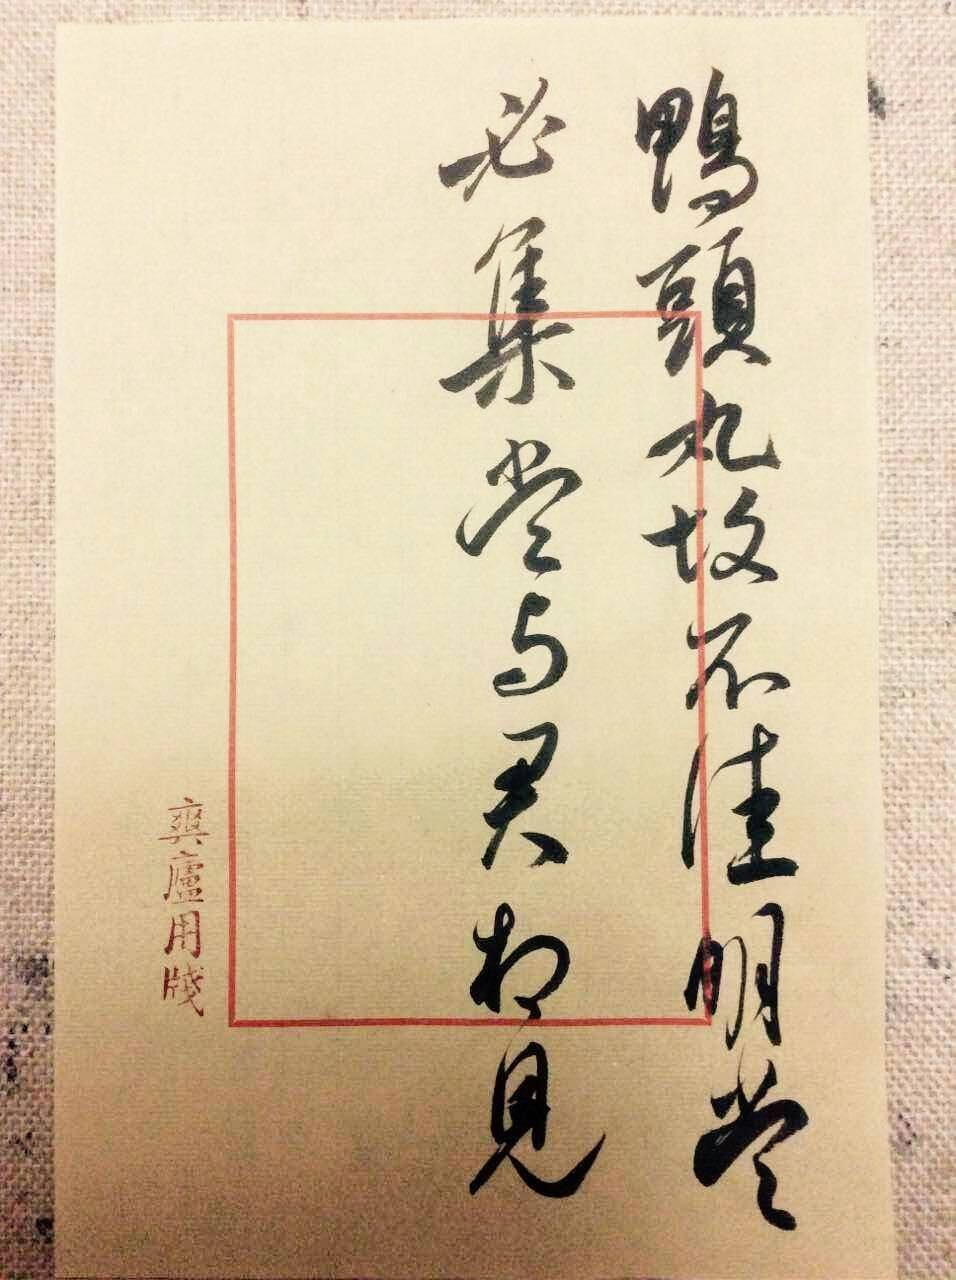 鴨頭丸故不佳明當
必集當與君相見
爽廬用牋